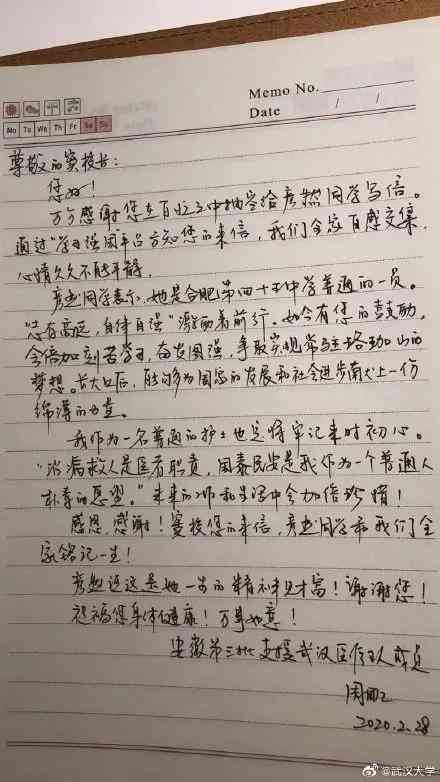 Memo No.
Date / /
Mo Tu We Th Fr Sa Su
尊敬的窦校长：
您好！
万分感谢您在百忙之中抽空给彦然同学写信。
通过“学习强国平台方知您的来信，我们全家百感交集，
心情久久不能平静。
彦然同学表示，她是合肥第四十五中学普通的一员。
“志存高远，自律自强”激励着前行。如今有您的鼓励，
会倍加刻苦学习，奋发图强，争取实现常驻珞珈山的
梦想。长大以后，能够为国家的发展和社会进步献上一份
绵薄的力量。
我作为一名普通的护士也定将牢记来时初心。
“治病救人是医者职责，国泰民安是我作为一个普通人
朴素的愿望。”未来的工作和生活中会加倍珍惜！
感恩，感谢！窦校您的来信，彦然同学和我们全
家铭记一生！
彦然说这是她一生的精神财富！谢谢您！
祝福您身体健康！万事如意！
安徽第三批支援武汉医疗队成员
2020.2.28
@武汉大学